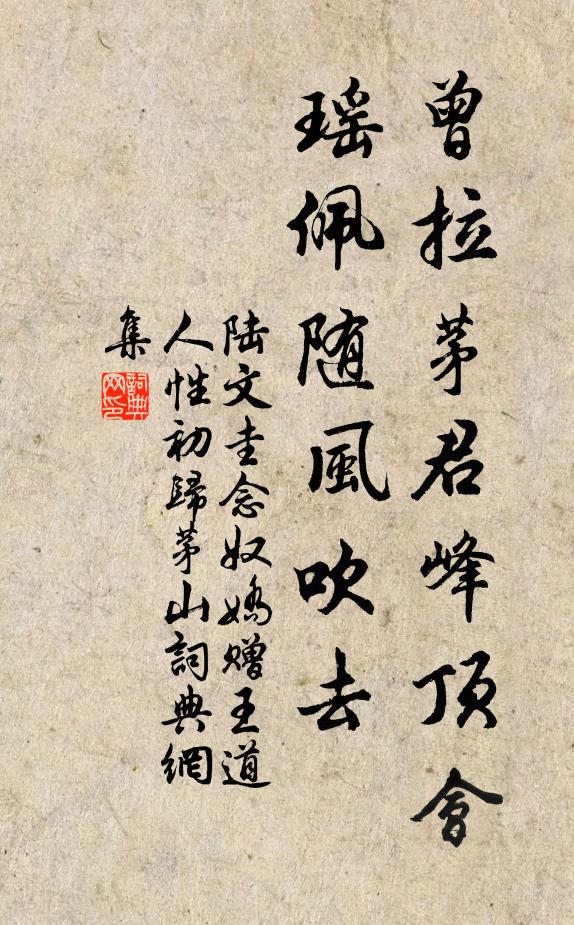 曾拉茅君峰頂會
瑶佩随風吹去
陆文圭念奴嬌赠王道
人性初歸茅山詞典網
集
詞典
网印